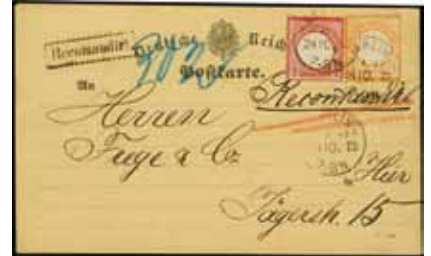 Recommandirt. Deutsche Reichs
Postkarte.
An
Recommandirt
Herren
Fuge & Co
Hier
Jägerstr. 15